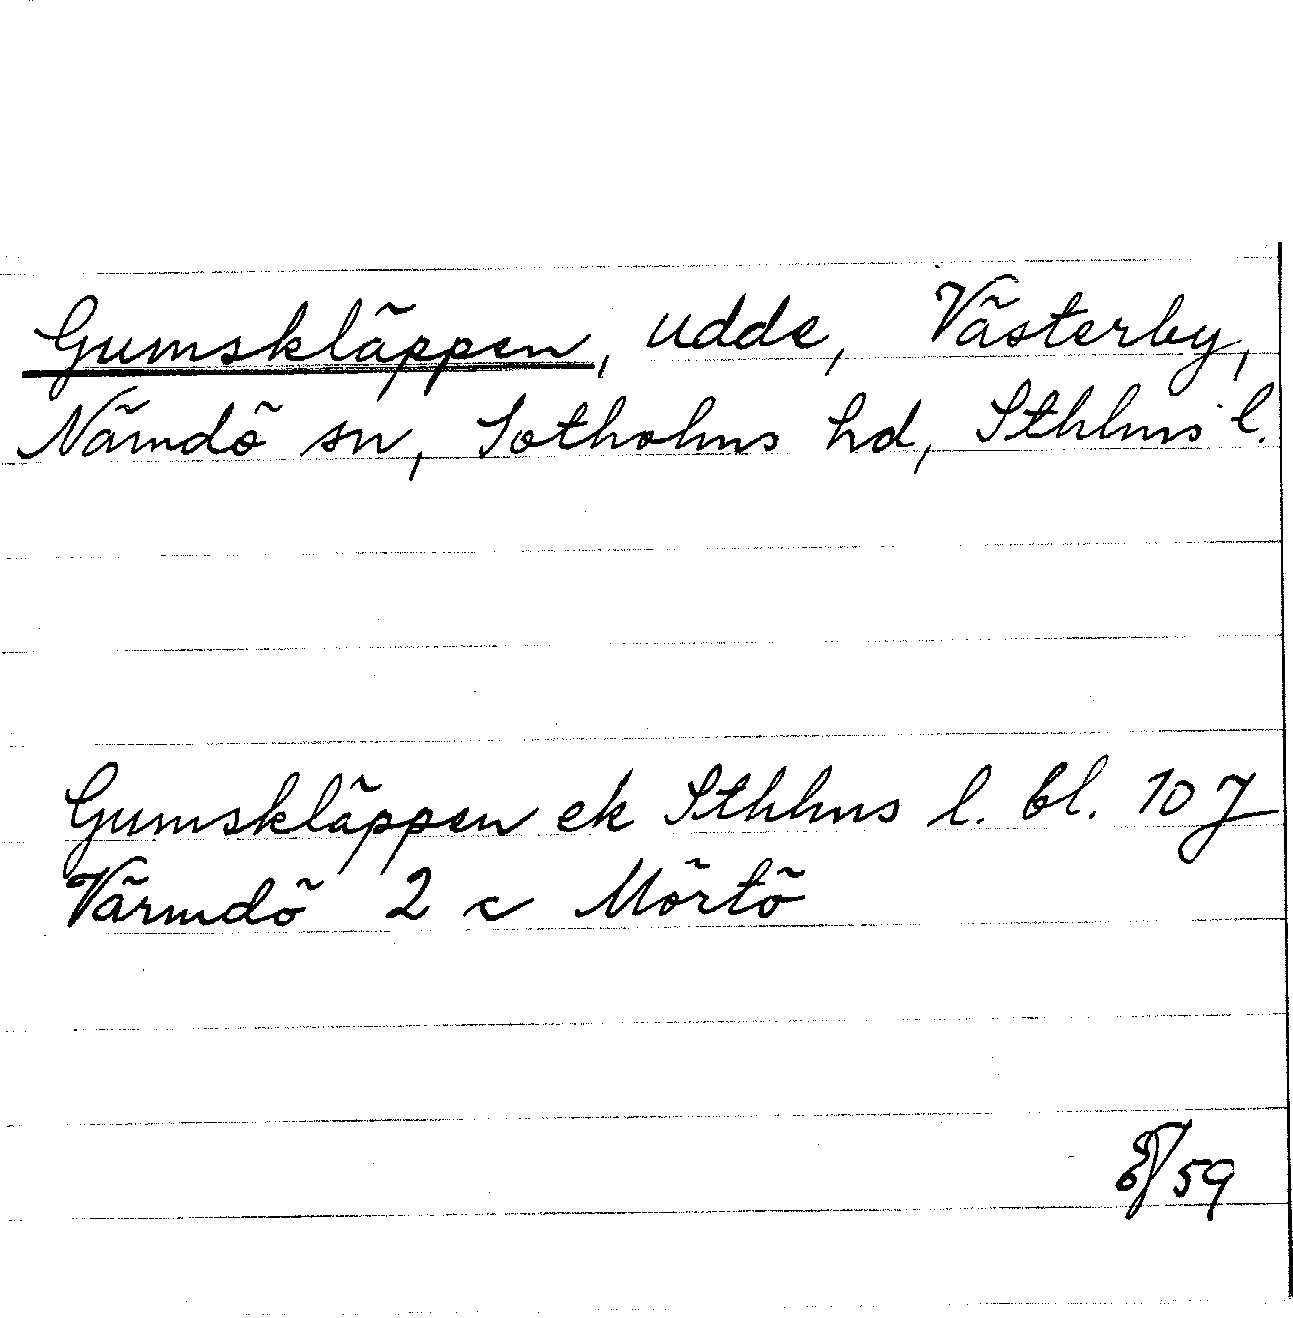 Gumskläppen, udde, Västerby,
Nämdö sn, Sotholms hd, Sthlms l.
Gumskläppen ek Sthlms l. bl. 107
Värmdö 2 c Mörtö
59